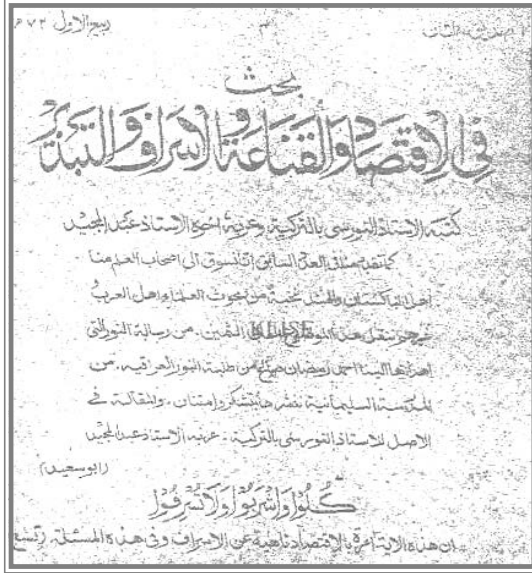 ربيع الاول ٧٢
٣
بحث
في الاقتصاد والقناعة والاسراف والتبذير
كتبه الاستاذ النورسي بالتركية وعربه اخوه الاستاذ عبد المجيد
كما تقدم في العدد السابق الى اصحاب العلم
اهل الباكستان والهند نخبة من بحوث العلماء اهل العرب
الثمين. من رسالة النور التي
اهداها الينا احمد رمضان من طلبة النور العراقية. من
المدرسة السليمانية ننشرها بتشكر وامتنان. والمقالة في
الاصل للاستاذ النورسي بالتركية. عربه الاستاذ عبد المجيد
(ابو سعيد)
كلوا واشربوا ولا تسرفوا
ان هذه الآية آمرة بالاقتصاد ناهية عن الاسراف وفي هذه المسئلة